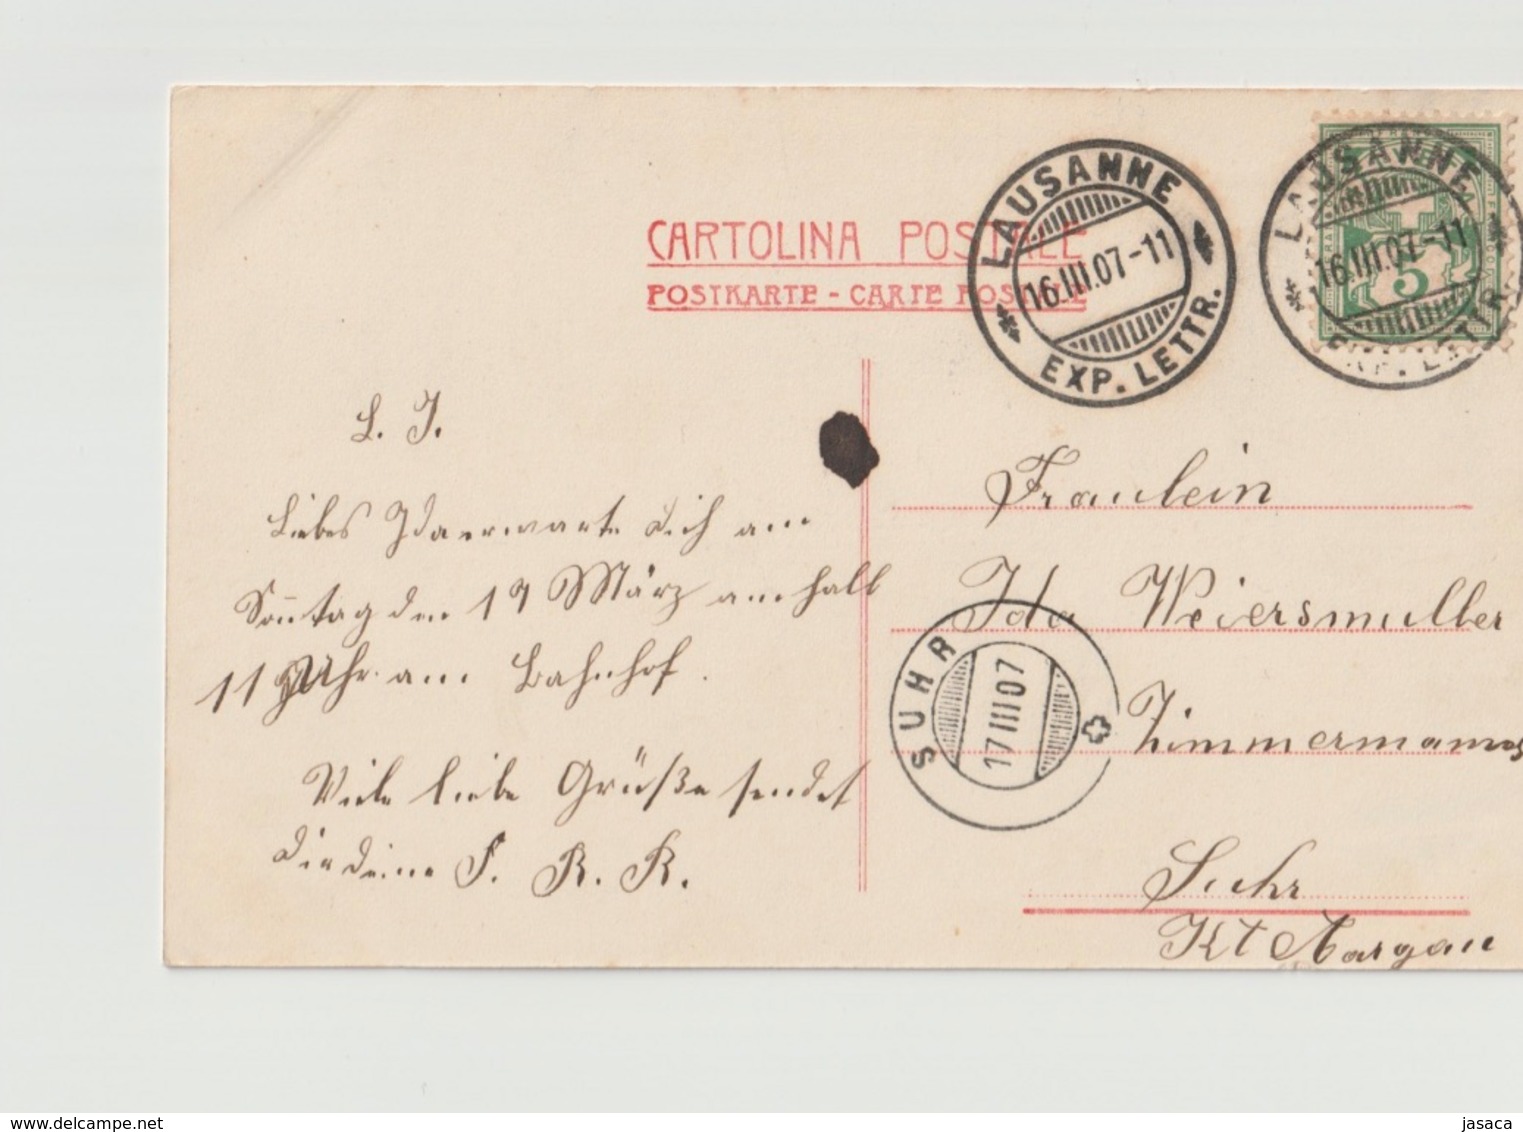 CARTOLINA POSTALE
POSTKARTE - CARTE POSTALE
LAUSANNE
16.III.07-11
EXP. LETTR.
LAUSANNE
16.III.07-11
EXP. LETTR.
5
L. I.
Liebes Ida erwarte Dich am
Sonntag den 17 März am halb
11 Uhr am Bahnhof.
Viele liebe Grüße sendet
Dir deine S. R. R.
Fraulein
Ida Weiersmuller
Zimmermanns
Suhr
Kt Aargau
SUHR
17 III 07
jasaca